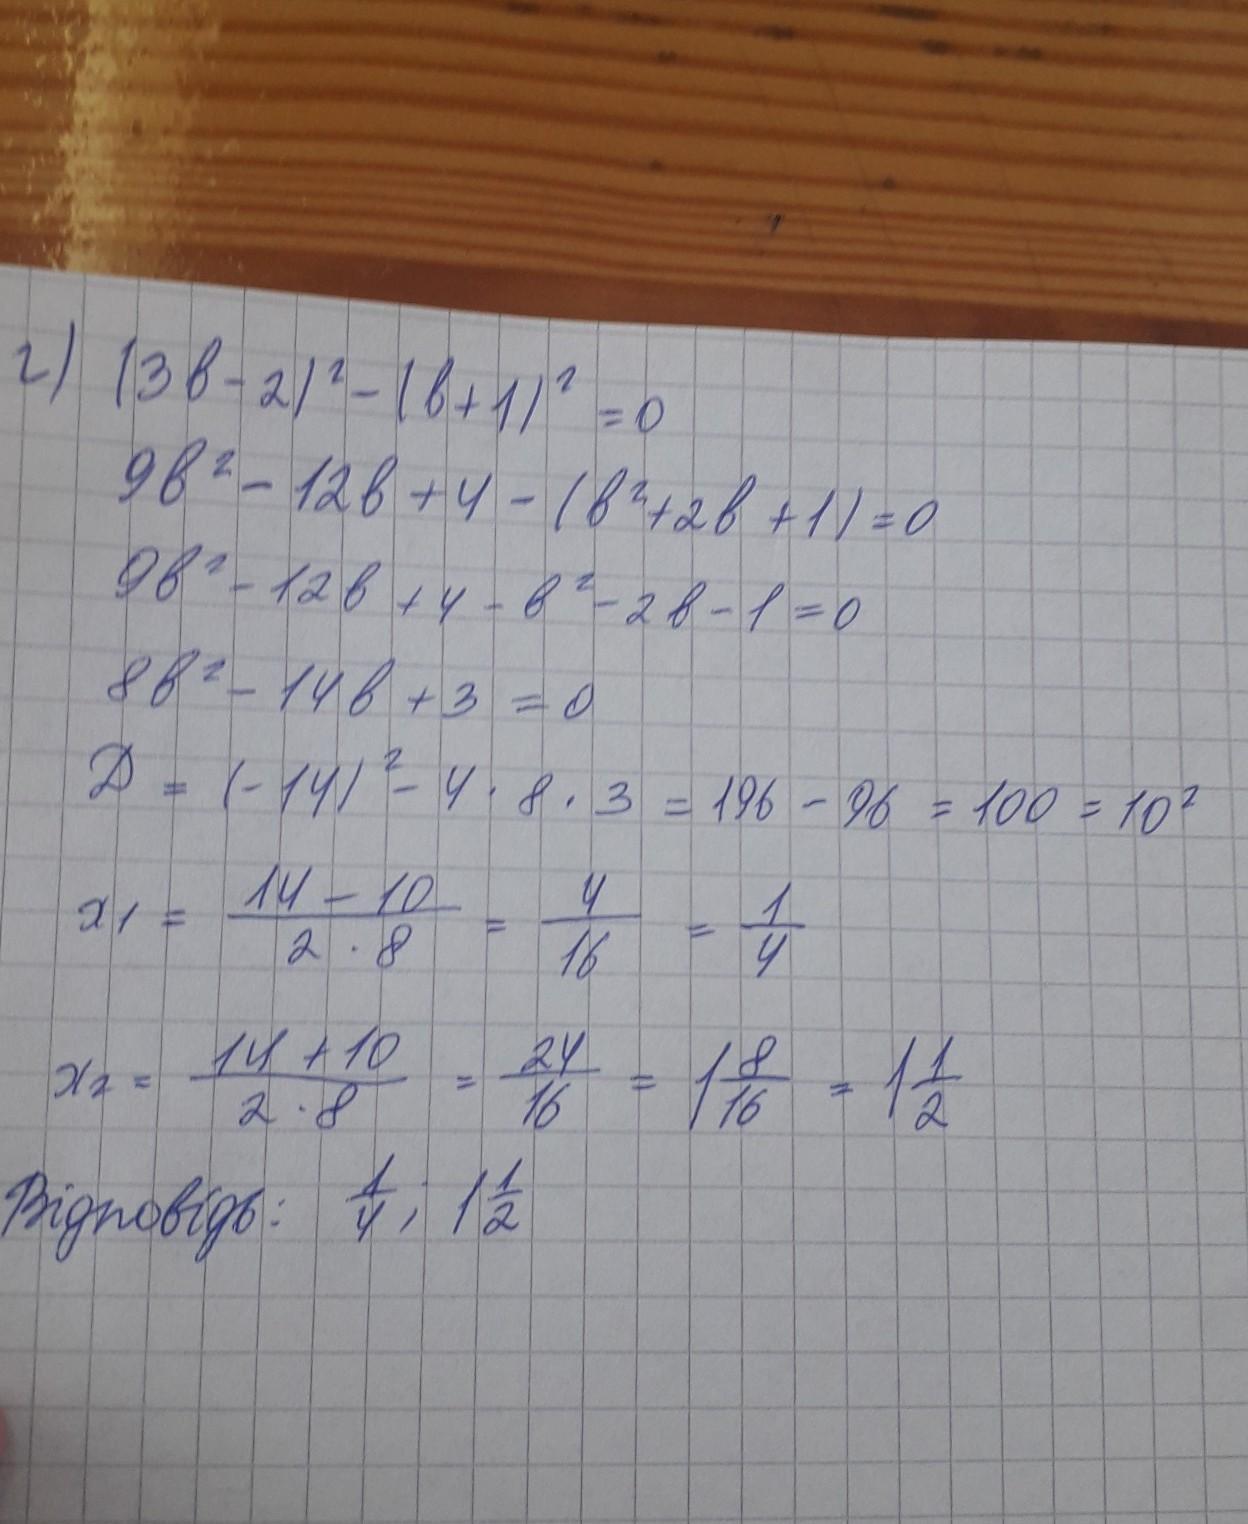 г) (3в-2)² - (в+1)² = 0
9в² - 12в + 4 - (в²+2в+1) = 0
9в² - 12в + 4 - в² - 2в - 1 = 0
8в² - 14в + 3 = 0
D = (-14)² - 4 · 8 · 3 = 196 - 96 = 100 = 10²
x₁ = (14 - 10)/(2 · 8) = 4/16 = 1/4
x₂ = (14 + 10)/(2 · 8) = 24/16 = 1 8/16 = 1 1/2
Відповідь: 1/4; 1 1/2